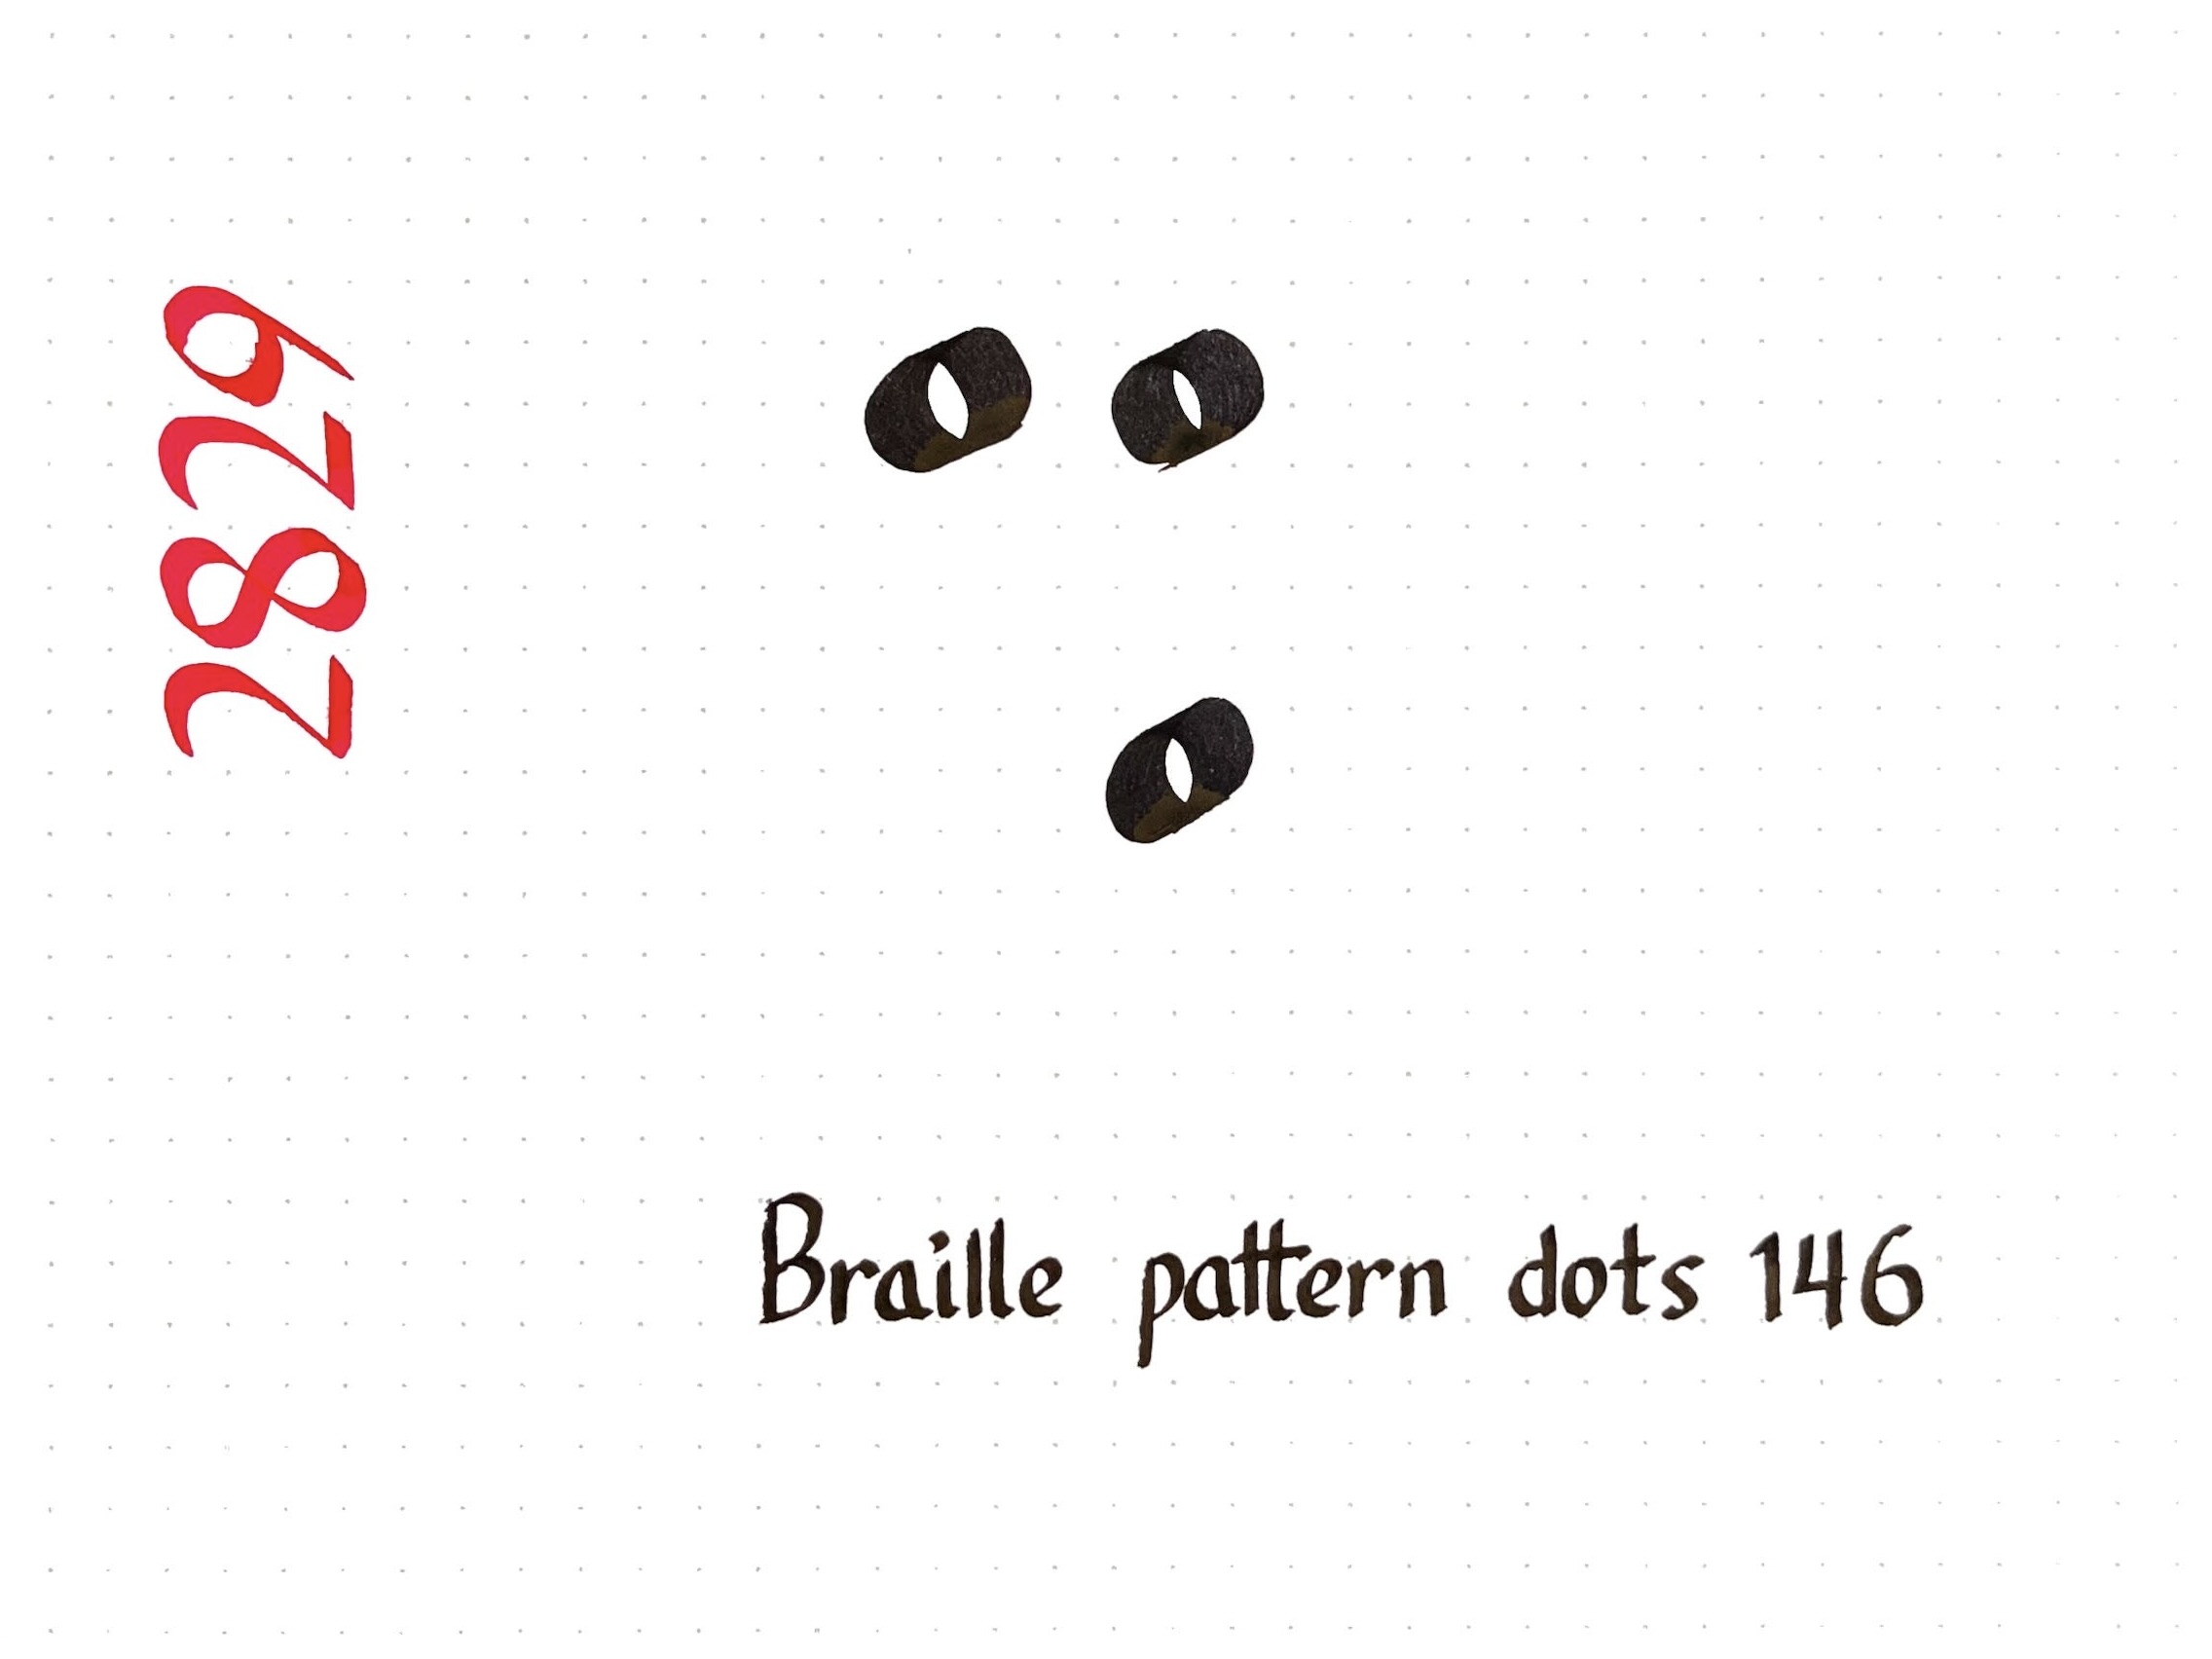 2829
⠩
Braille pattern dots 146